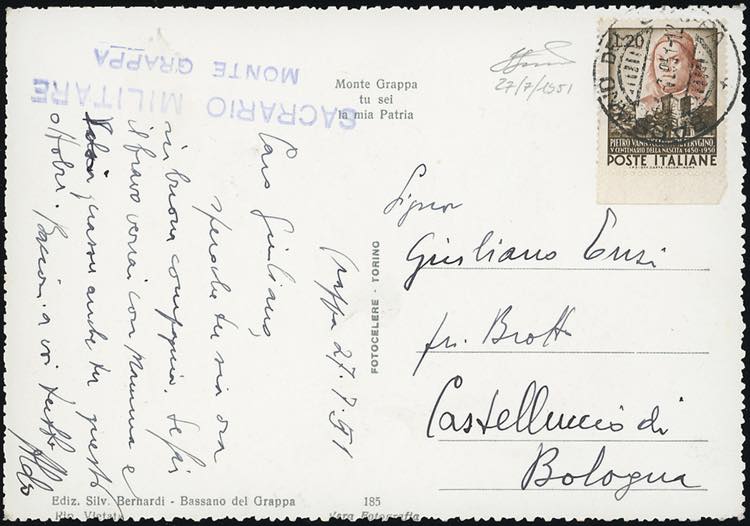 SACRARIO MILITARE
MONTE GRAPPA
Monte Grappa
tu sei
la mia Patria
27/7/1951
L.20
PIETRO
V CENTENARIO DELLA NASCITA 1450-1950
POSTE ITALIANE
Grappa 27.7.51
Caro Giuliano,
spero che tu sia ora
in buona compagnia. Se fai
il bravo verrai con mamma e
quassù anche tu questo
ottobre. Bacioni a voi tutti
Aldo
Signor
Giuliano
fr. Brotto
Castelluccio di
Bologna
FOTOCELERE - TORINO
Ediz. Silv. Bernardi - Bassano del Grappa
185
Rip. Vietata
Vera Fotografia